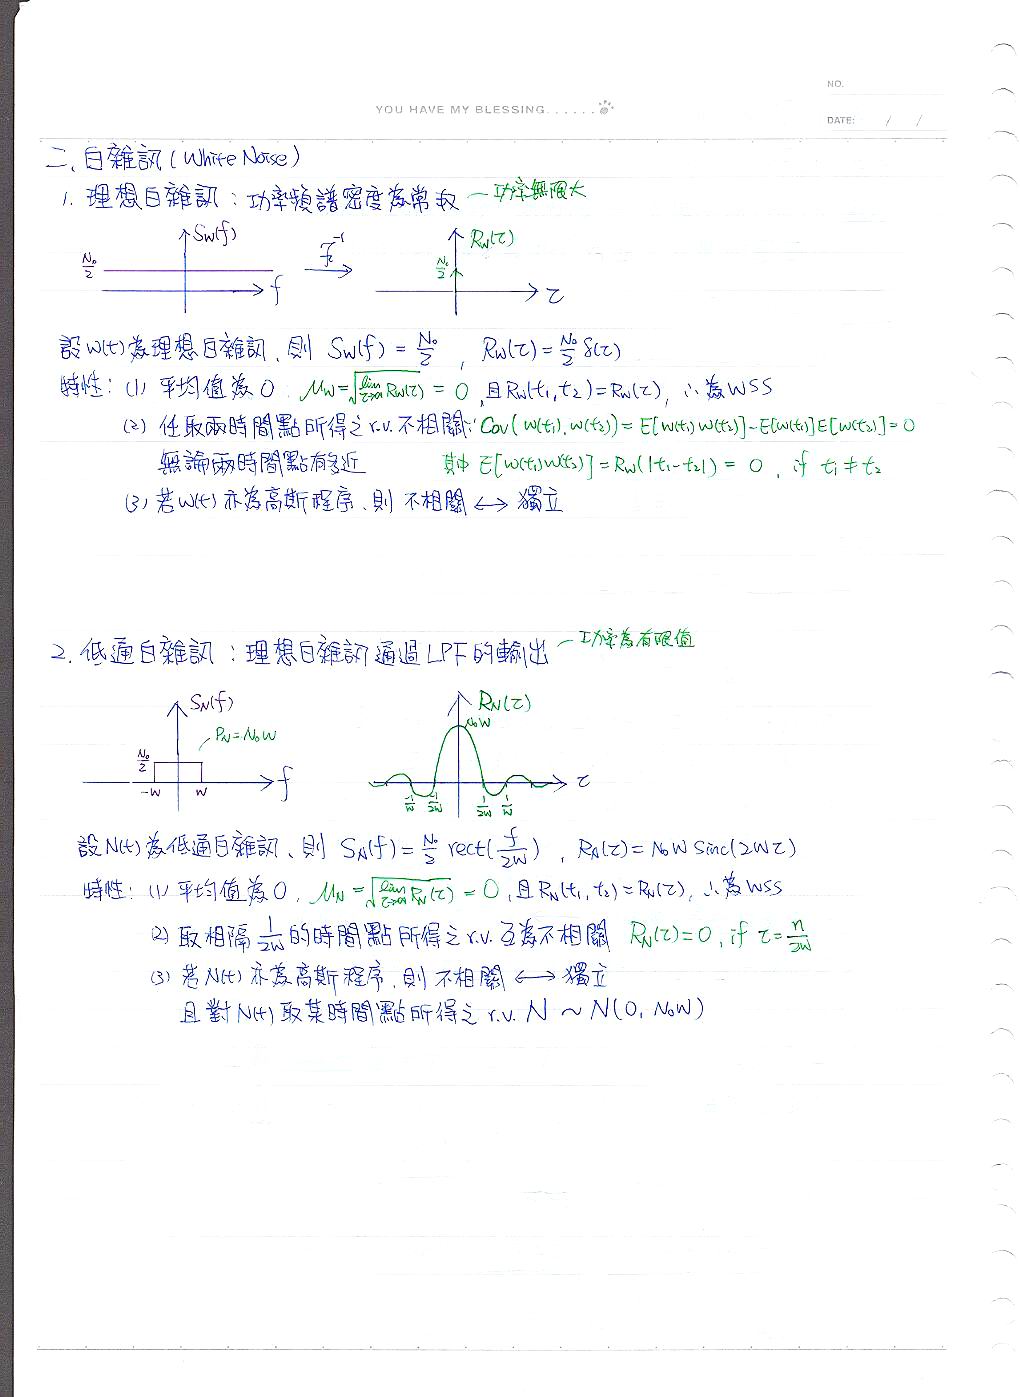 NO.
YOU HAVE MY BLESSING......
DATE: / /
二、白雜訊 (White Noise)
1. 理想白雜訊：功率頻譜密度為常數 —功率無限大
Sw(f) F⁻¹ Rw(τ)
N₀/2 f N₀/2 τ
設W(t)為理想白雜訊、則 Sw(f) = N₀/2 , Rw(τ) = N₀/2 δ(τ)
特性：(1) 平均值為0. μw = √(lim τ→∞ Rw(τ)) = 0 , 且Rw(t₁, t₂) = Rw(τ), ∴為WSS
(2) 任取兩時間點所得之 r.v. 不相關: Cov(W(t₁), W(t₂)) = E[W(t₁)W(t₂)] - E[W(t₁)]E[W(t₂)] = 0
無論兩時間點有多近 其中 E[W(t₁)W(t₂)] = Rw(|t₁-t₂|) = 0 , if t₁ ≠ t₂
(3) 若W(t)亦為高斯程序、則 不相關 ↔ 獨立
2. 低通白雜訊：理想白雜訊通過LPF的輸出 —功率為有限值
SN(f) RN(τ)
PN = N₀W N₀W
N₀/2 -W W f -1/W -1/2W 1/2W 1/W τ
設N(t)為低通白雜訊、則 SN(f) = N₀/2 rect(f/2W) , RN(τ) = N₀W Sinc(2Wτ)
特性：(1) 平均值為0. μN = √(lim τ→∞ RN(τ)) = 0 , 且RN(t₁, t₂) = RN(τ), ∴為WSS
(2) 取相隔 1/2W 的時間點所得之 r.v. 互為不相關 RN(τ) = 0, if τ = n/2W
(3) 若N(t)亦為高斯程序、則 不相關 ↔ 獨立
且對N(t)取某時間點所得之 r.v. N ~ N(0, N₀W)